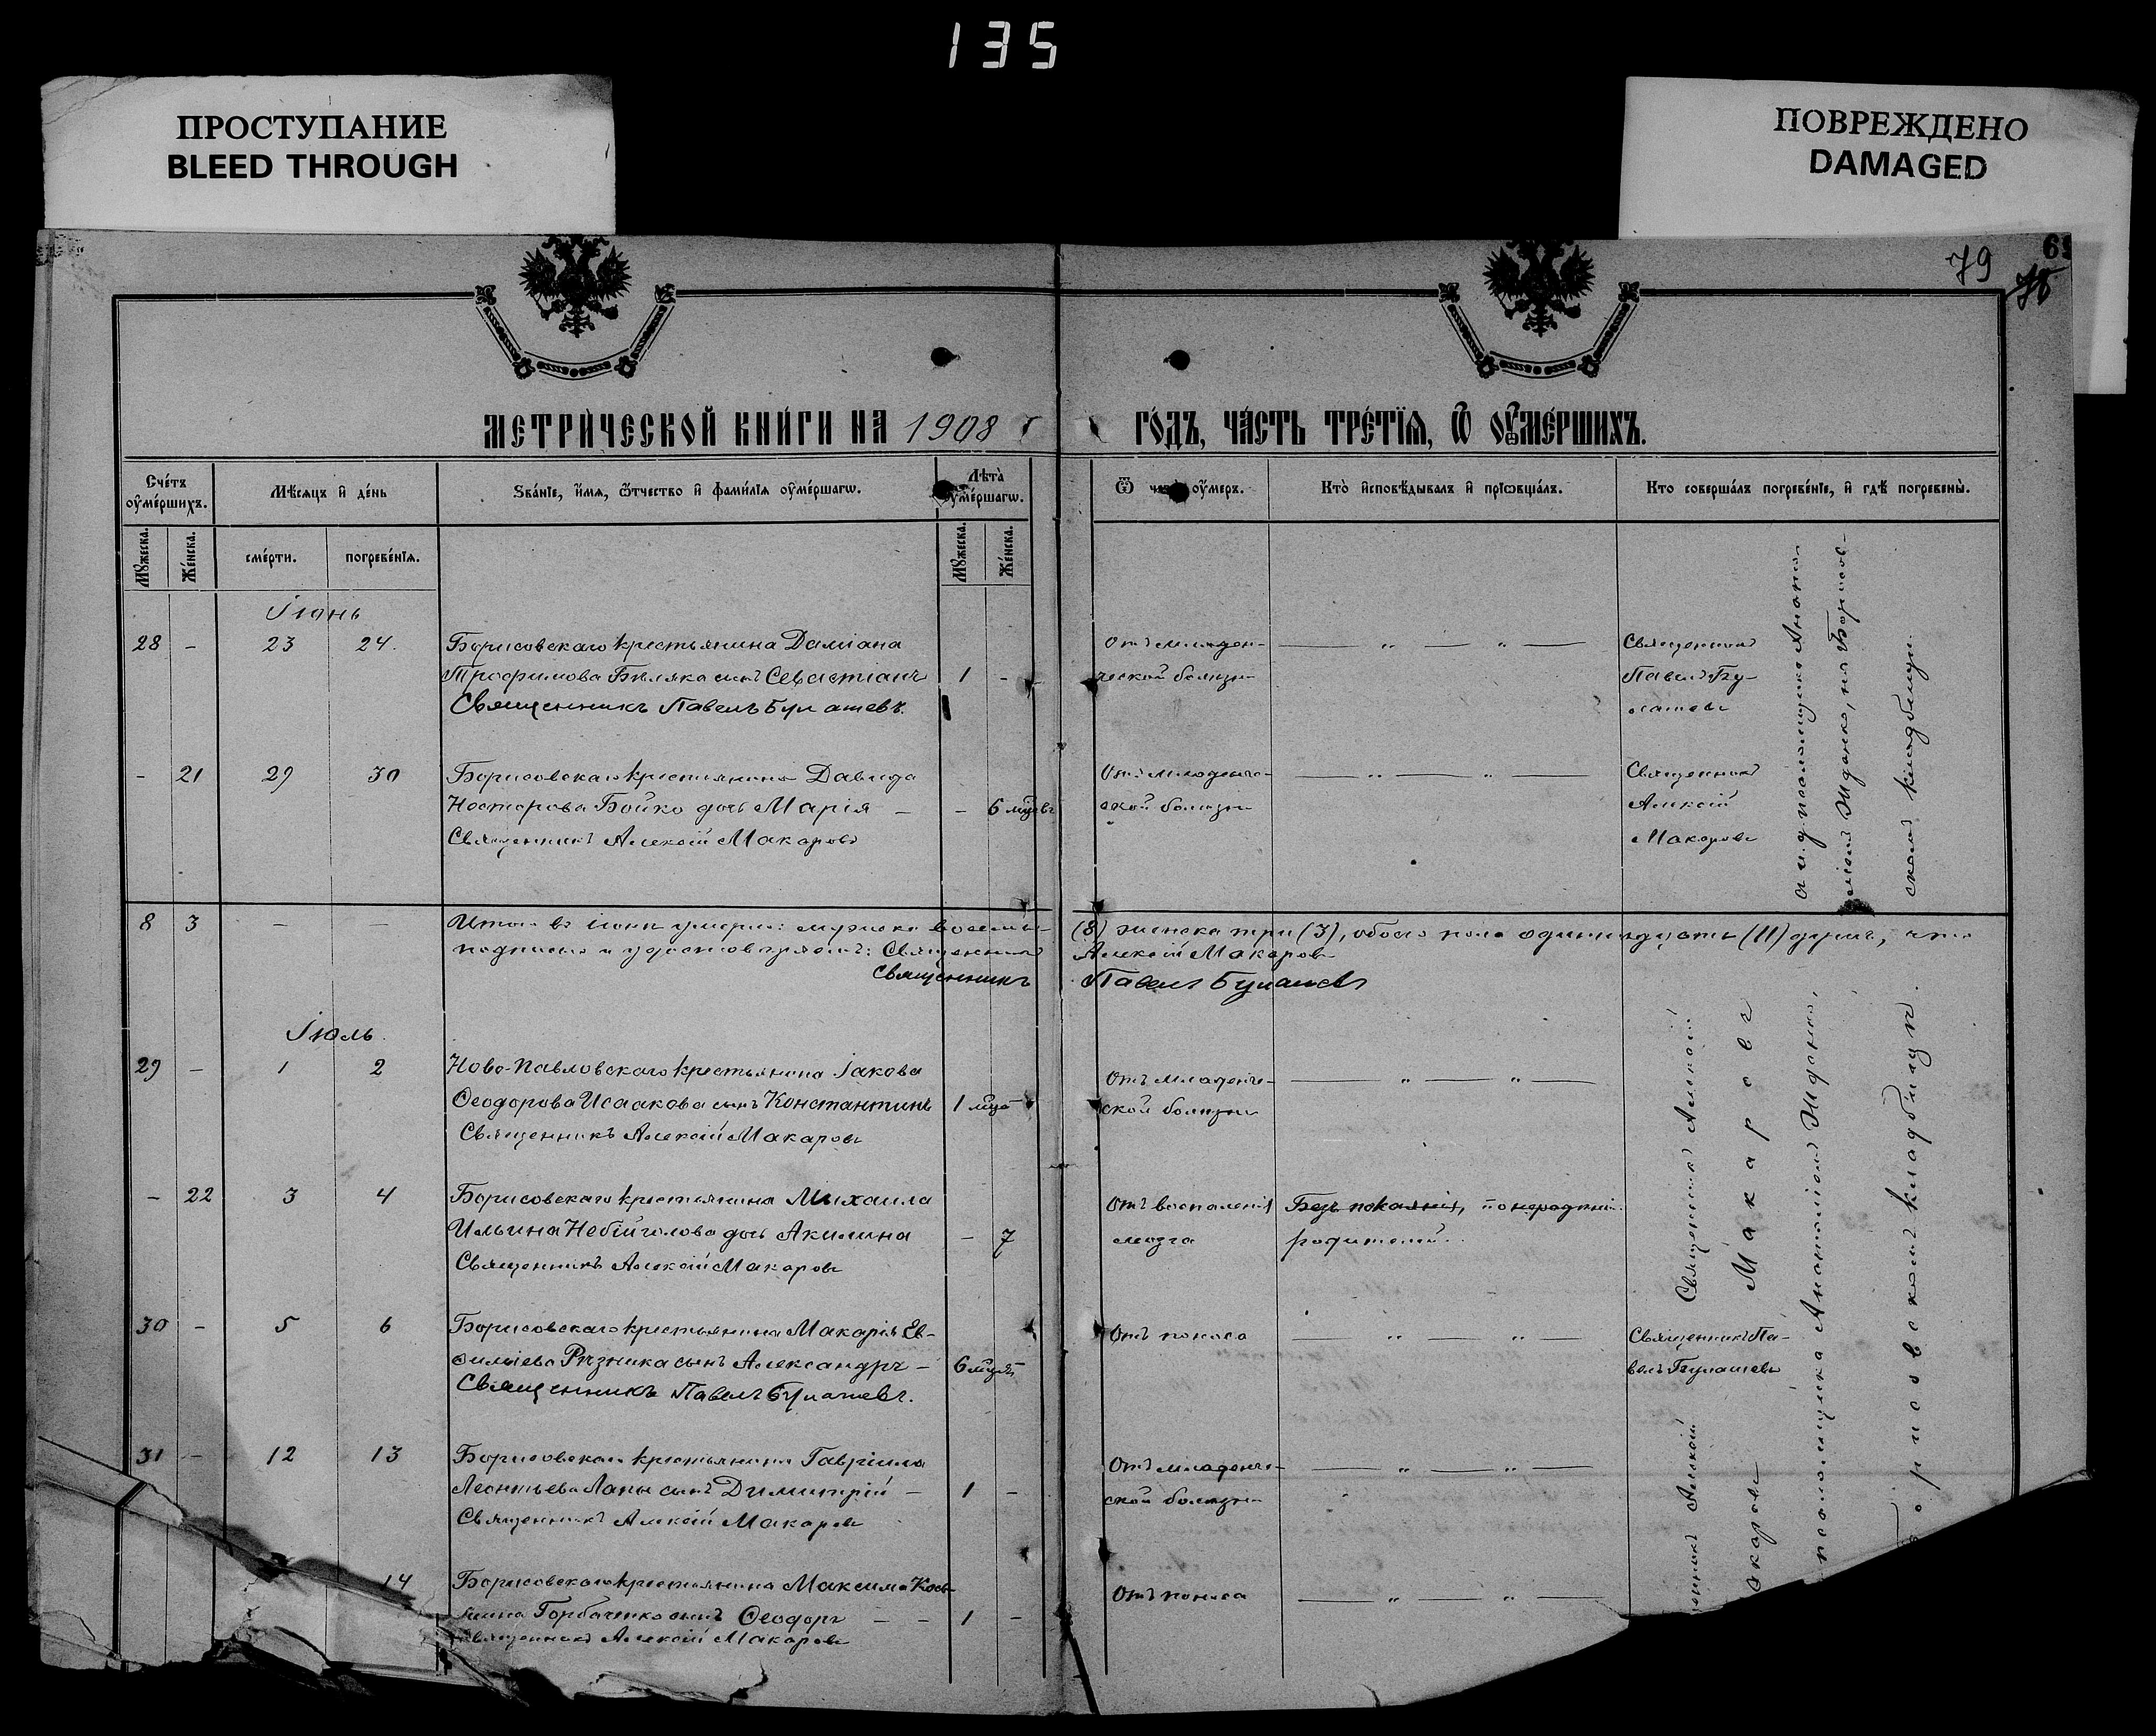 135
ПРОСТУПАНИЕ
BLEED THROUGH
ПОВРЕЖДЕНО
DAMAGED
79
МЕТРИ́ЧЕСКОЙ КНИ́ГИ НА 1908 г
ГО́ДЪ, ЧА́СТЬ ТРЕ́ТЇѦ, Ѿ ОУ҆МЕ́РШИХЪ.
Сче́тъ оу҆ме́ршихъ.
Мѣ́сѧцъ и҆ де́нь
Ѕва́нїе, и҆́мѧ, ѻ҆́тчество и҆ фами́лїѧ оу҆ме́ршагѡ.
Лѣ̑та̀ оу҆ме́ршагѡ.
Ѿ чегѡ̀ оу҆́меръ.
Кто̀ и҆сповѣ́дывалъ и҆ прїѡбща́лъ.
Кто соверша́лъ погребе́нїе, и҆ гдѣ̀ погребены̀.
Мꙋ́жеска.
Же́нска.
сме́рти.
погребе́нїѧ.
Мꙋ́жеска.
Же́нска.
Іюнь
28 - 23 24. Борисовскаго крестьянина Даміана
Трофимова Бѣляка сынъ Севастіанъ 1 -
Священникъ Павелъ Булашевъ.
Отъ младен-
ческой болѣзни
— „ — „ —
Священникъ
Павелъ Бу-
лашевъ
- 21 29 30 Борисовскаго крестьянина Давида
Несторова Бойко дочь Марія - - 6 мцевъ
Священникъ Алексій Макаровъ
Отъ младенче-
ской болѣзни
— „ — „ —
Священникъ
Алексій
Макаровъ
и. д. псаломщика
Жданко, на Борисов-
скомъ кладбищѣ.
8 3 — — Итого въ іюнѣ умерло: мужска восемь
(8) женска три (3), обоего пола одиннадцать (11) душъ, что
подписью и удостовѣряемъ: Священникъ
Алексій Макаровъ
Священникъ
Павелъ Булашевъ
Іюль.
29 - 1 2 Ново-Павловскаго крестьянина Іакова
Ѳеодорова Исаакова сынъ Константинъ 1 мца
Священникъ Алексій Макаровъ
Отъ младенче-
ской болѣзни
— „ — „ —
- 22 3 4 Борисовскаго крестьянина Михаила
Ильина Небійголова дочь Акилина - 7
Священникъ Алексій Макаровъ
Отъ воспаленія
мозга
Безъ покаянія, по нерадѣнію
родителей.
30 - 5 6 Борисовскаго крестьянина Макарія Ев-
Рѣзника сынъ Александръ - 6 мцевъ
Священникъ Павелъ Булашевъ.
Отъ поноса
— „ — „ —
Священникъ Па-
велъ Булашевъ
31 - 12 13 Борисовскаго крестьянина Гавріила
Леонтьева Лапы сынъ Димитрій - 1 -
Священникъ Алексій Макаровъ
Отъ младенче-
ской болѣзни
— „ — „ —
14 Борисовскаго крестьянина Максима Кось-
мина Горбаченко сынъ Ѳеодоръ - - 1 -
Священникъ Алексій Макаровъ
Отъ поноса
— „ — „ —
Священникъ Алексій
Макаровъ
псаломщика Жданко,
Борисовскомъ кладбищѣ.
Алексій